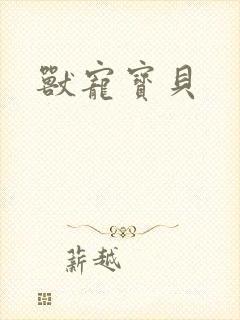 獸寵寶貝
薪越